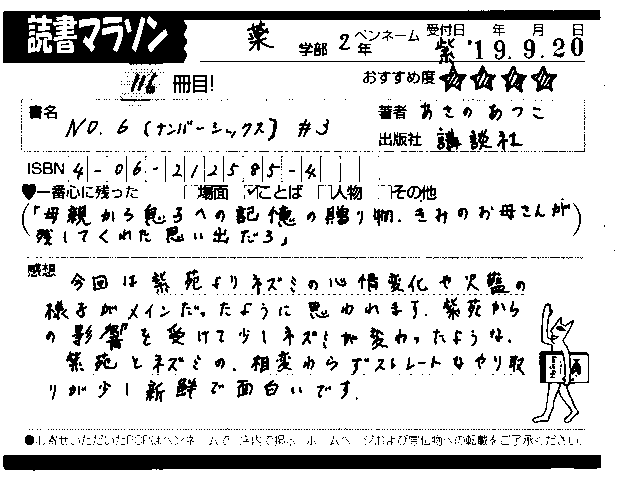 読書マラソン 薬 学部 2年 ペンネーム 紫 受付日 年 月 日 '19.9.20
116 冊目! おすすめ度 ☆☆☆☆
書名 NO.6 (ナンバーシックス) #3 著者 あさのあつこ
出版社 講談社
ISBN 4-06-212585-4
♥一番心に残った □場面 ☑ことば □人物 □その他
(「母親から息子への記憶の贈り物.きみのお母さんが
残してくれた思い出だろ」)
感想 今回は紫苑よりネズミの心情変化や沙藍の
様子がメインだったように思われます.紫苑から
の影響を受けて少しネズミが変わったような.
紫苑とネズミの,相変わらずストレートなやり取
りが少し新鮮で面白いです.
●お寄せいただいたPOPはペンネームで、店内で掲示・ホームページおよび宣伝物への転載をご了承ください。